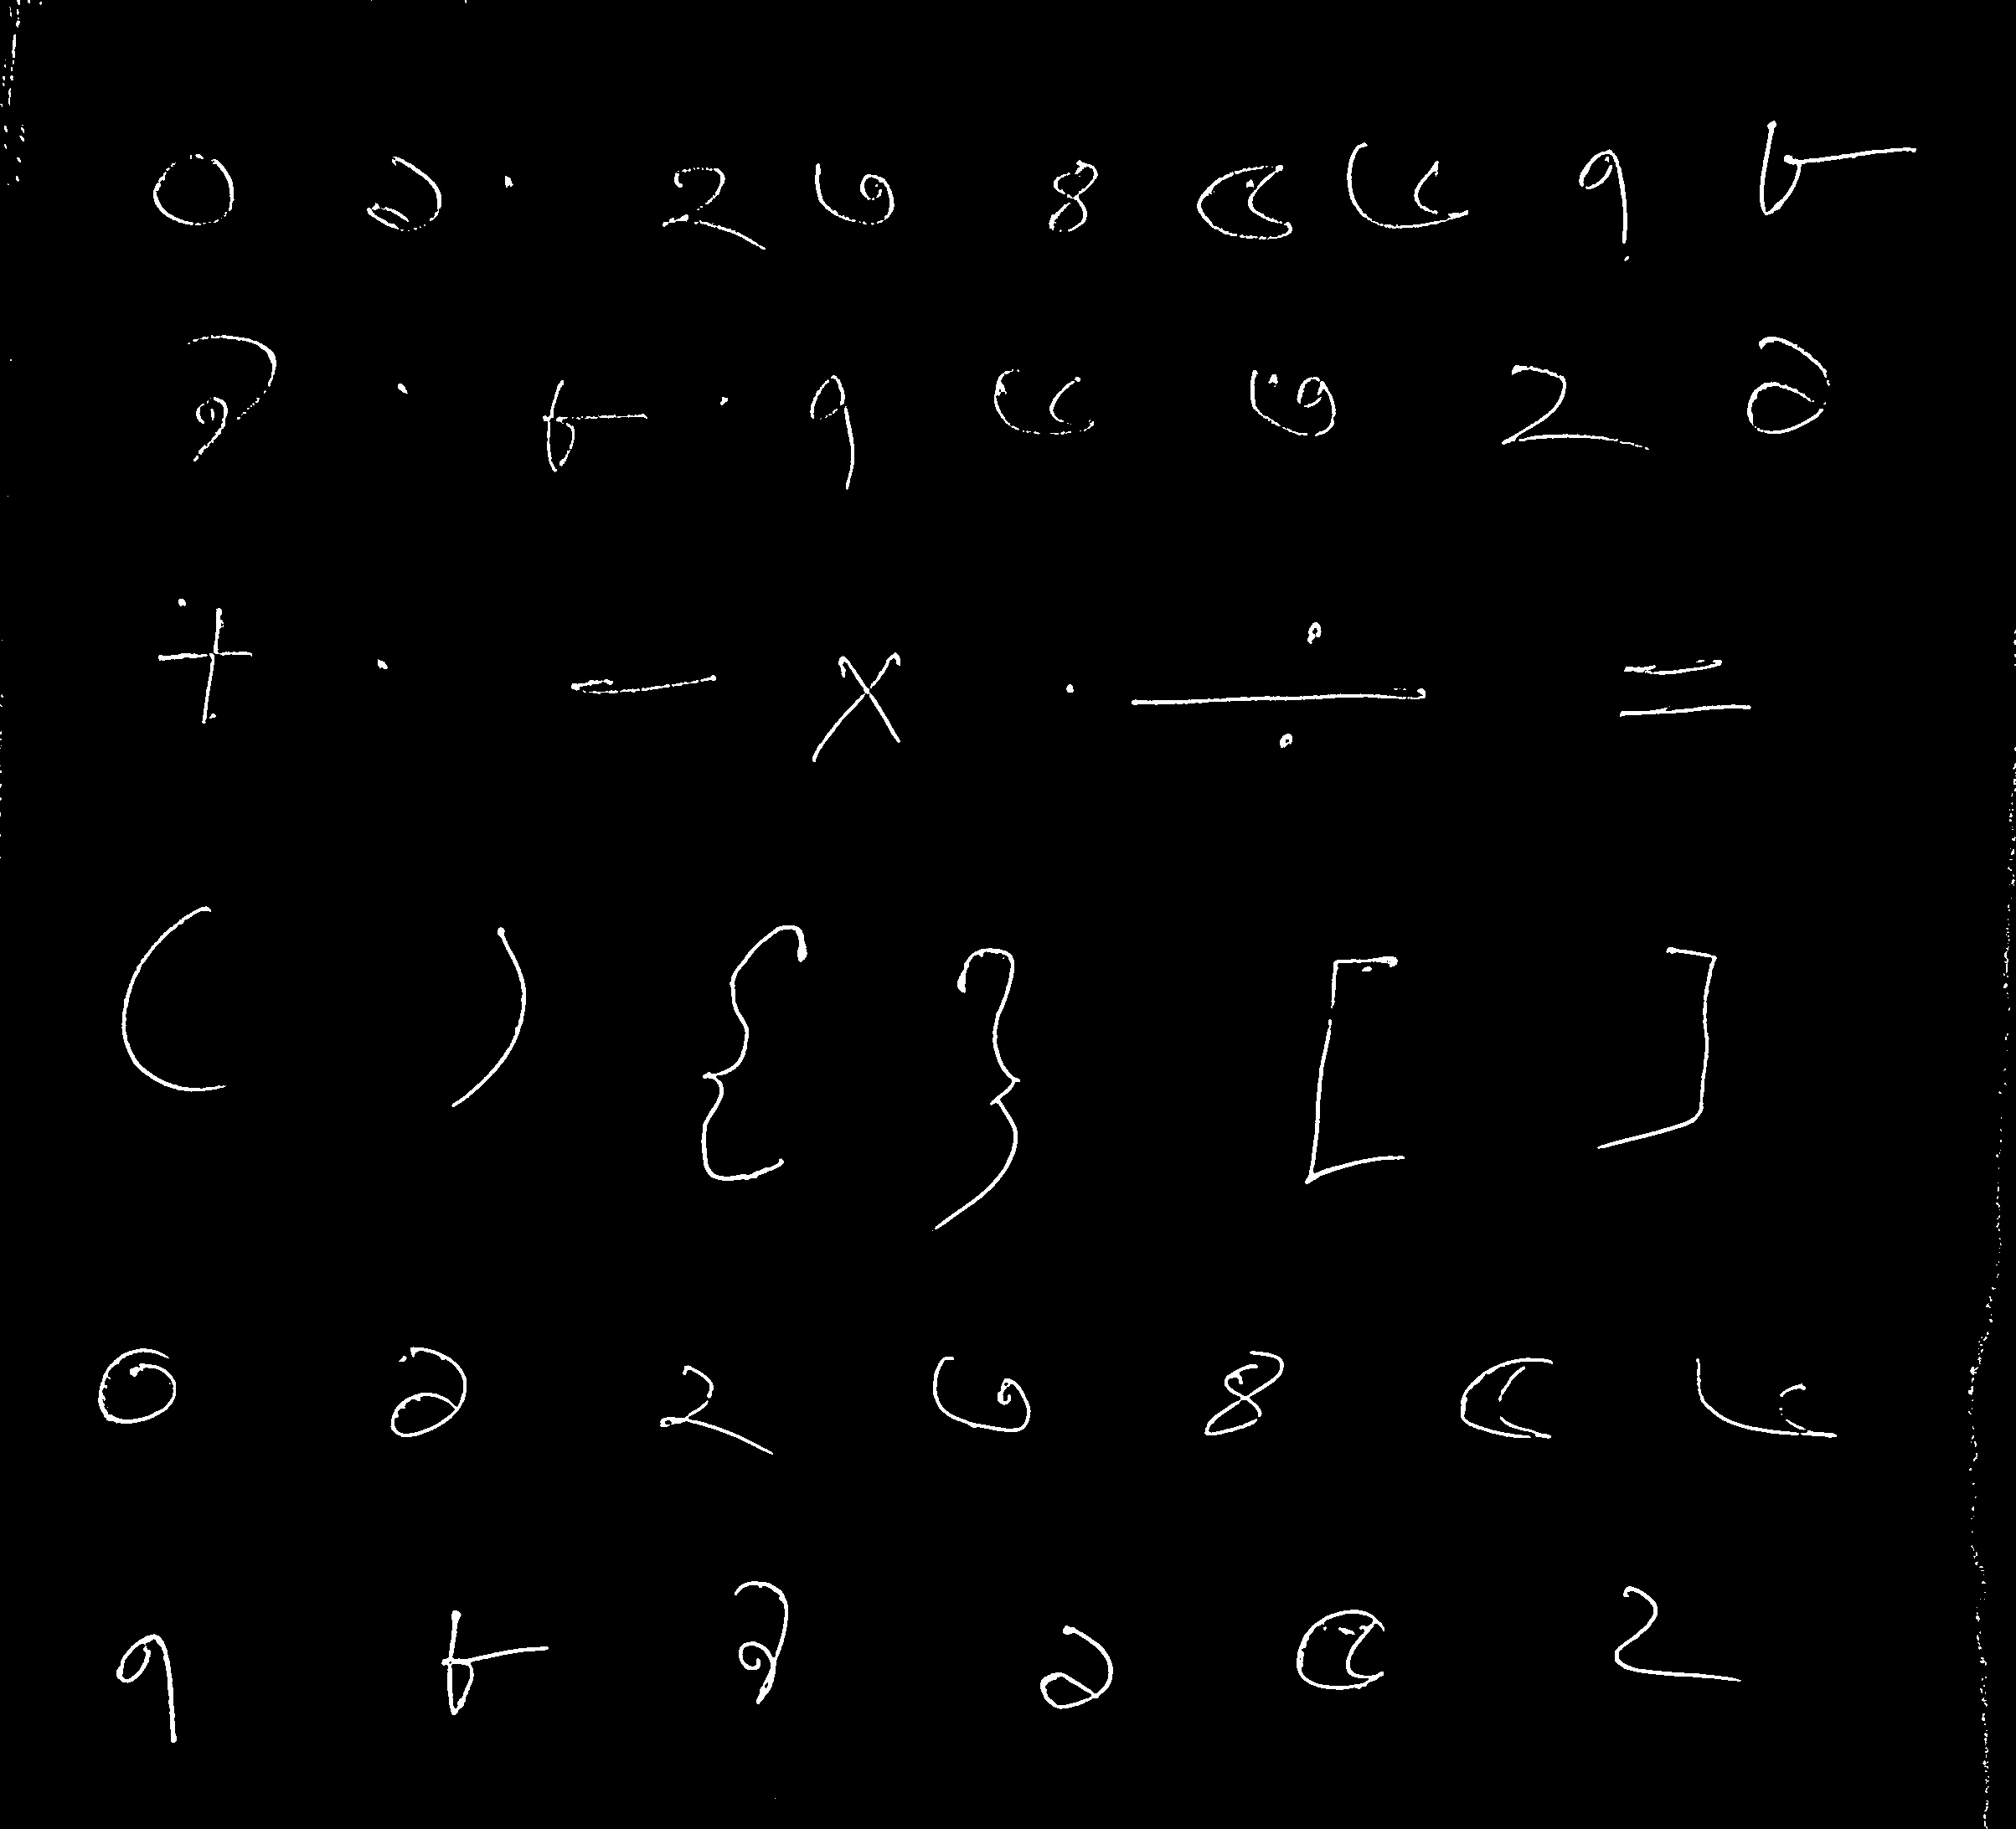 ০ ১ ২ ৩ ৪ ৫ ৬ ৭ ৮
৯ ৮ ৭ ৬ ৩ ২ ১
+ - × ÷ =
( ) { } [ ]
০ ১ ২ ৩ ৪ ৫ ৬
৭ ৮ ৯ ১ ৫ ২